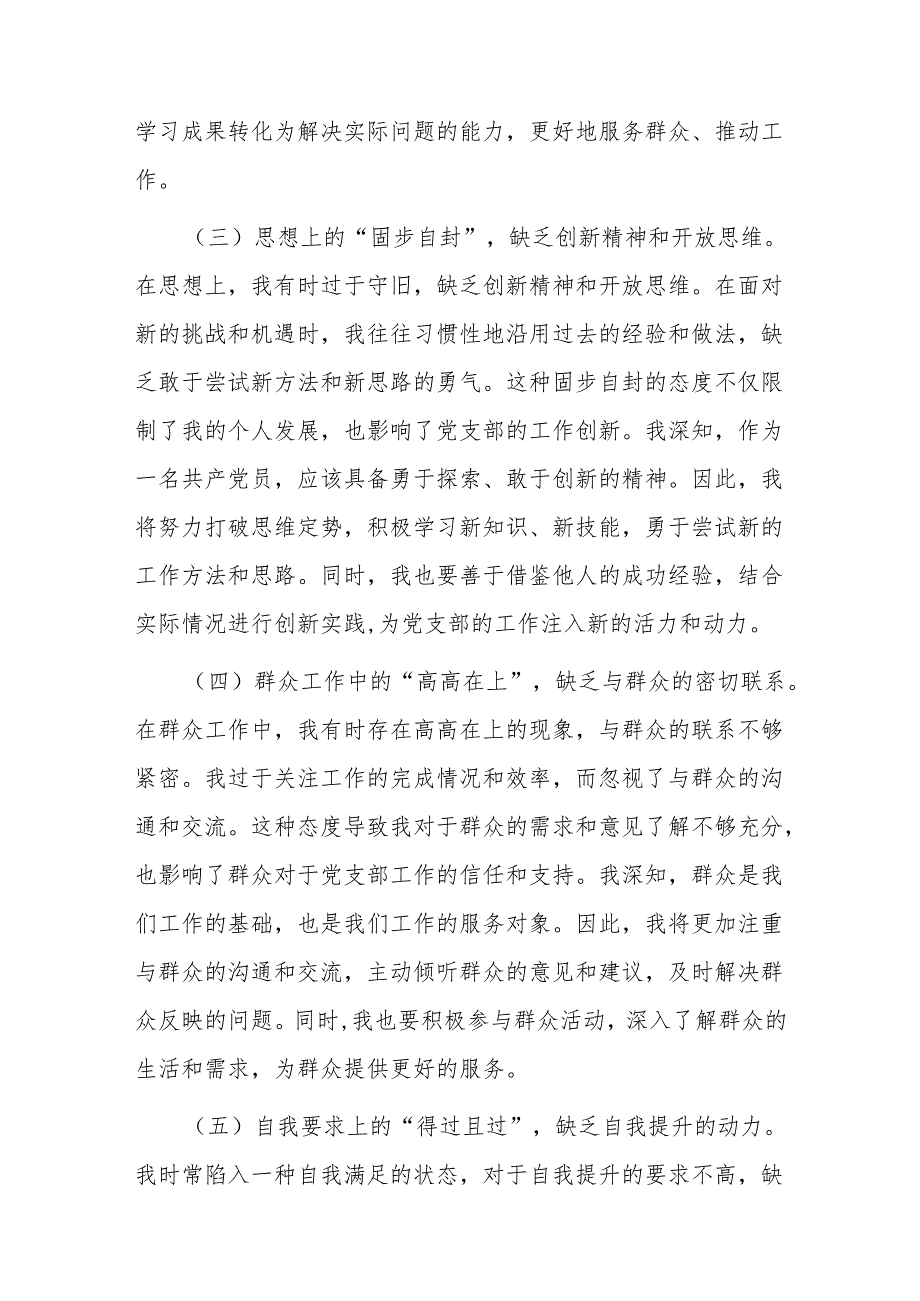 学习成果转化为解决实际问题的能力，更好地服务群众、推动工
作。
（三）思想上的“固步自封”，缺乏创新精神和开放思维。
在思想上，我有时过于守旧，缺乏创新精神和开放思维。在面对
新的挑战和机遇时，我往往习惯性地沿用过去的经验和做法，缺
乏敢于尝试新方法和新思路的勇气。这种固步自封的态度不仅限
制了我的个人发展，也影响了党支部的工作创新。我深知，作为
一名共产党员，应该具备勇于探索、敢于创新的精神。因此，我
将努力打破思维定势，积极学习新知识、新技能，勇于尝试新的
工作方法和思路。同时，我也要善于借鉴他人的成功经验，结合
实际情况进行创新实践,为党支部的工作注入新的活力和动力。
（四）群众工作中的“高高在上”，缺乏与群众的密切联系。
在群众工作中，我有时存在高高在上的现象，与群众的联系不够
紧密。我过于关注工作的完成情况和效率，而忽视了与群众的沟
通和交流。这种态度导致我对于群众的需求和意见了解不够充分，
也影响了群众对于党支部工作的信任和支持。我深知，群众是我
们工作的基础，也是我们工作的服务对象。因此，我将更加注重
与群众的沟通和交流，主动倾听群众的意见和建议，及时解决群
众反映的问题。同时,我也要积极参与群众活动，深入了解群众的
生活和需求，为群众提供更好的服务。
（五）自我要求上的“得过且过”，缺乏自我提升的动力。
我时常陷入一种自我满足的状态，对于自我提升的要求不高，缺